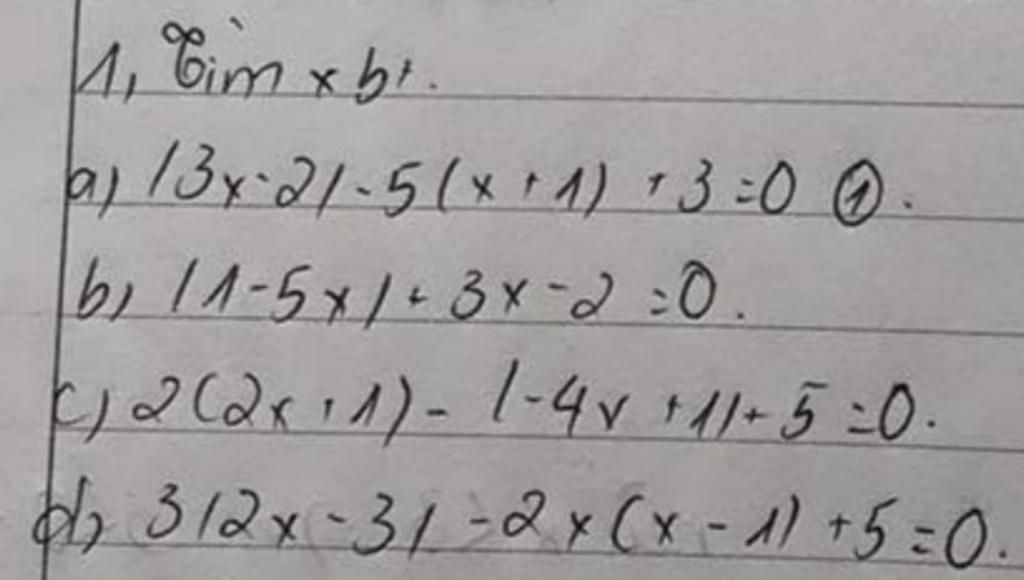 1, Tìm x bt.
a) |3x-2|-5(x+1)+3=0 ①.
b) |1-5x|+3x-2=0.
c) 2(2x+1)-|-4x+1|+5=0.
d) 3|2x-3|-2x(x-1)+5=0.